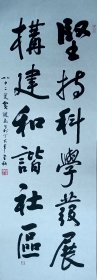 堅持科學發展
構建和諧社區